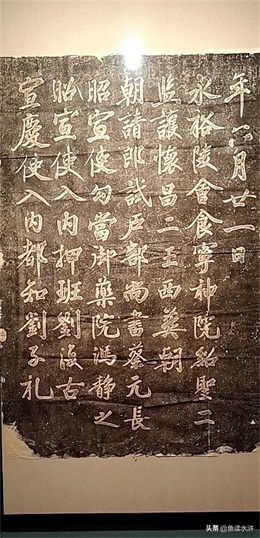 宣慶使入內都知劉子礼
昭宣使入內押班劉復古
昭宣使勾當御藥院馮靜之
朝請郎試戶部尚書蔡元長
監護懷昌二王西葬朝
永裕陵會食寧神院紹聖二
年六月廿一日
头条 @鱼读水浒